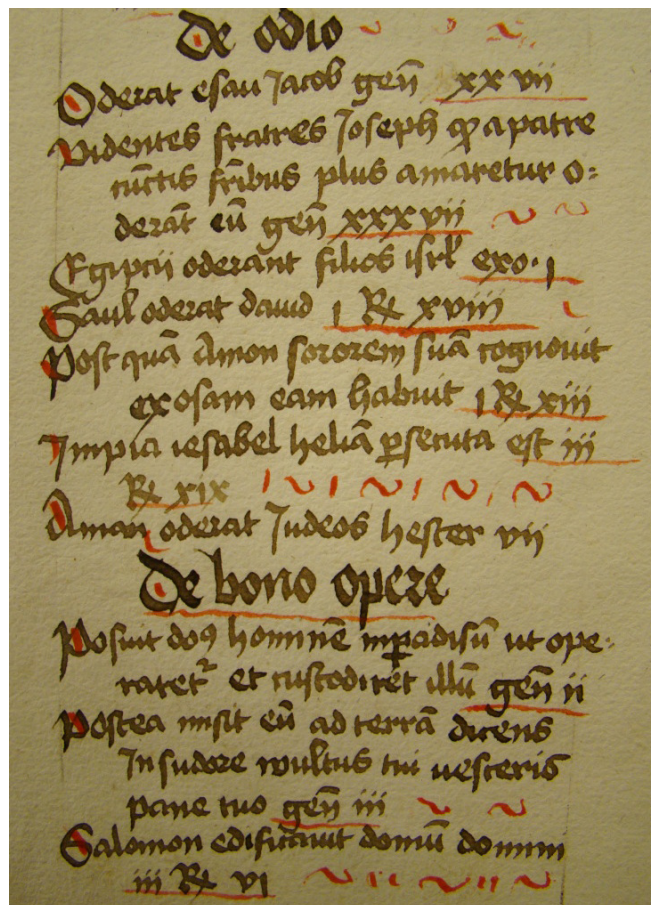 De odio
Oderat esau Jacob gen̄ xxvii
Videntes fratres Joseph ꝙ a patre
cūctis fr̄ibus plus amaretur o=
derāt eū gen̄ xxxvii
Egiptii oderant filios isrl̄ exo. 1
Saul oderat dauid 1 Re xviii
Post quā Amon sororem suā cognouit
exosam eam habuit 1 Re xiii
Impia iesabel heliā ꝑsecuta est iii
Re xix
Aman oderat Judeos hester vii
De bono opere
Posuit dōs hominē in ꝑadisū ut ope-
raret᷑ et custodiret illū gen̄ ii
Postea misit eū ad terrā dicens
In sudore wultus tui uesceris
pane tuo gen̄ iii
Salomon edificauit domū domini
iii Re vi